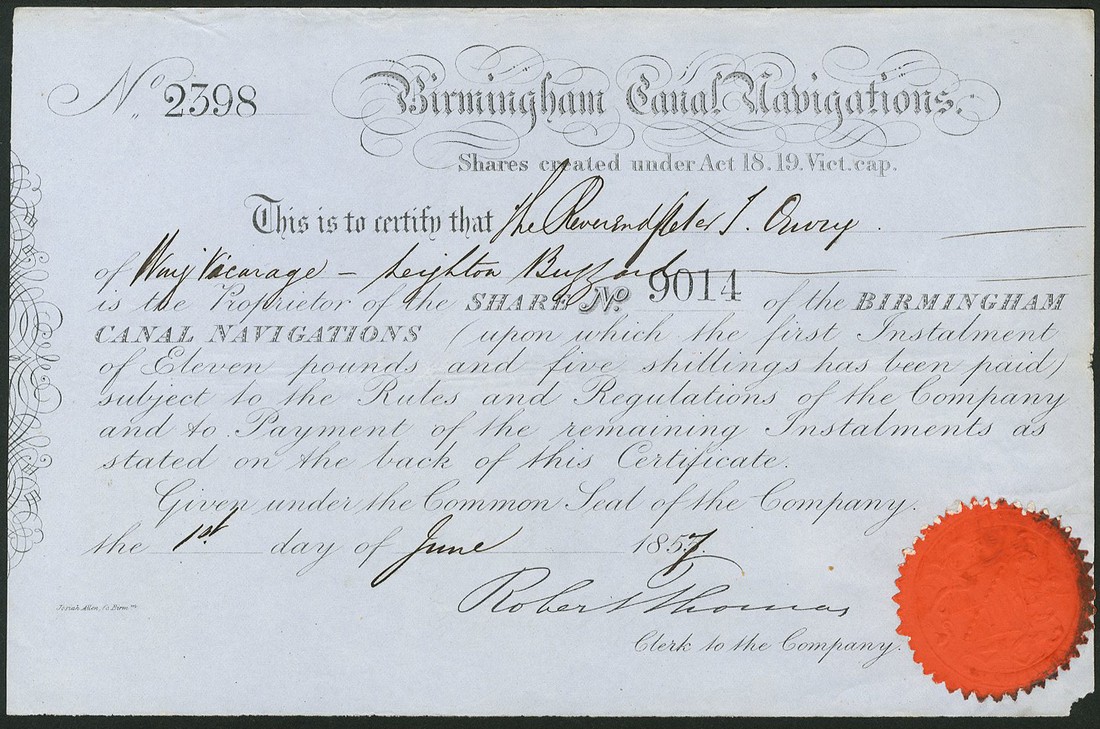 No. 2398
Birmingham Canal Navigations.
Shares created under Act 18.19. Vict. cap.
This is to certify that The Reverend Peter T. Ouvry
of Wing Vicarage – Leighton Buzzard
is the Proprietor of the SHARE No. 9014 of the BIRMINGHAM
CANAL NAVIGATIONS (upon which the first Instalment
of Eleven pounds and five shillings has been paid)
subject to the Rules and Regulations of the Company
and to Payment of the remaining Instalments as
stated on the back of this Certificate.
Given under the Common Seal of the Company.
the 1st day of June 1857.
Robert Thomas
Josiah Allen, Sc. Birmm.
Clerk to the Company.